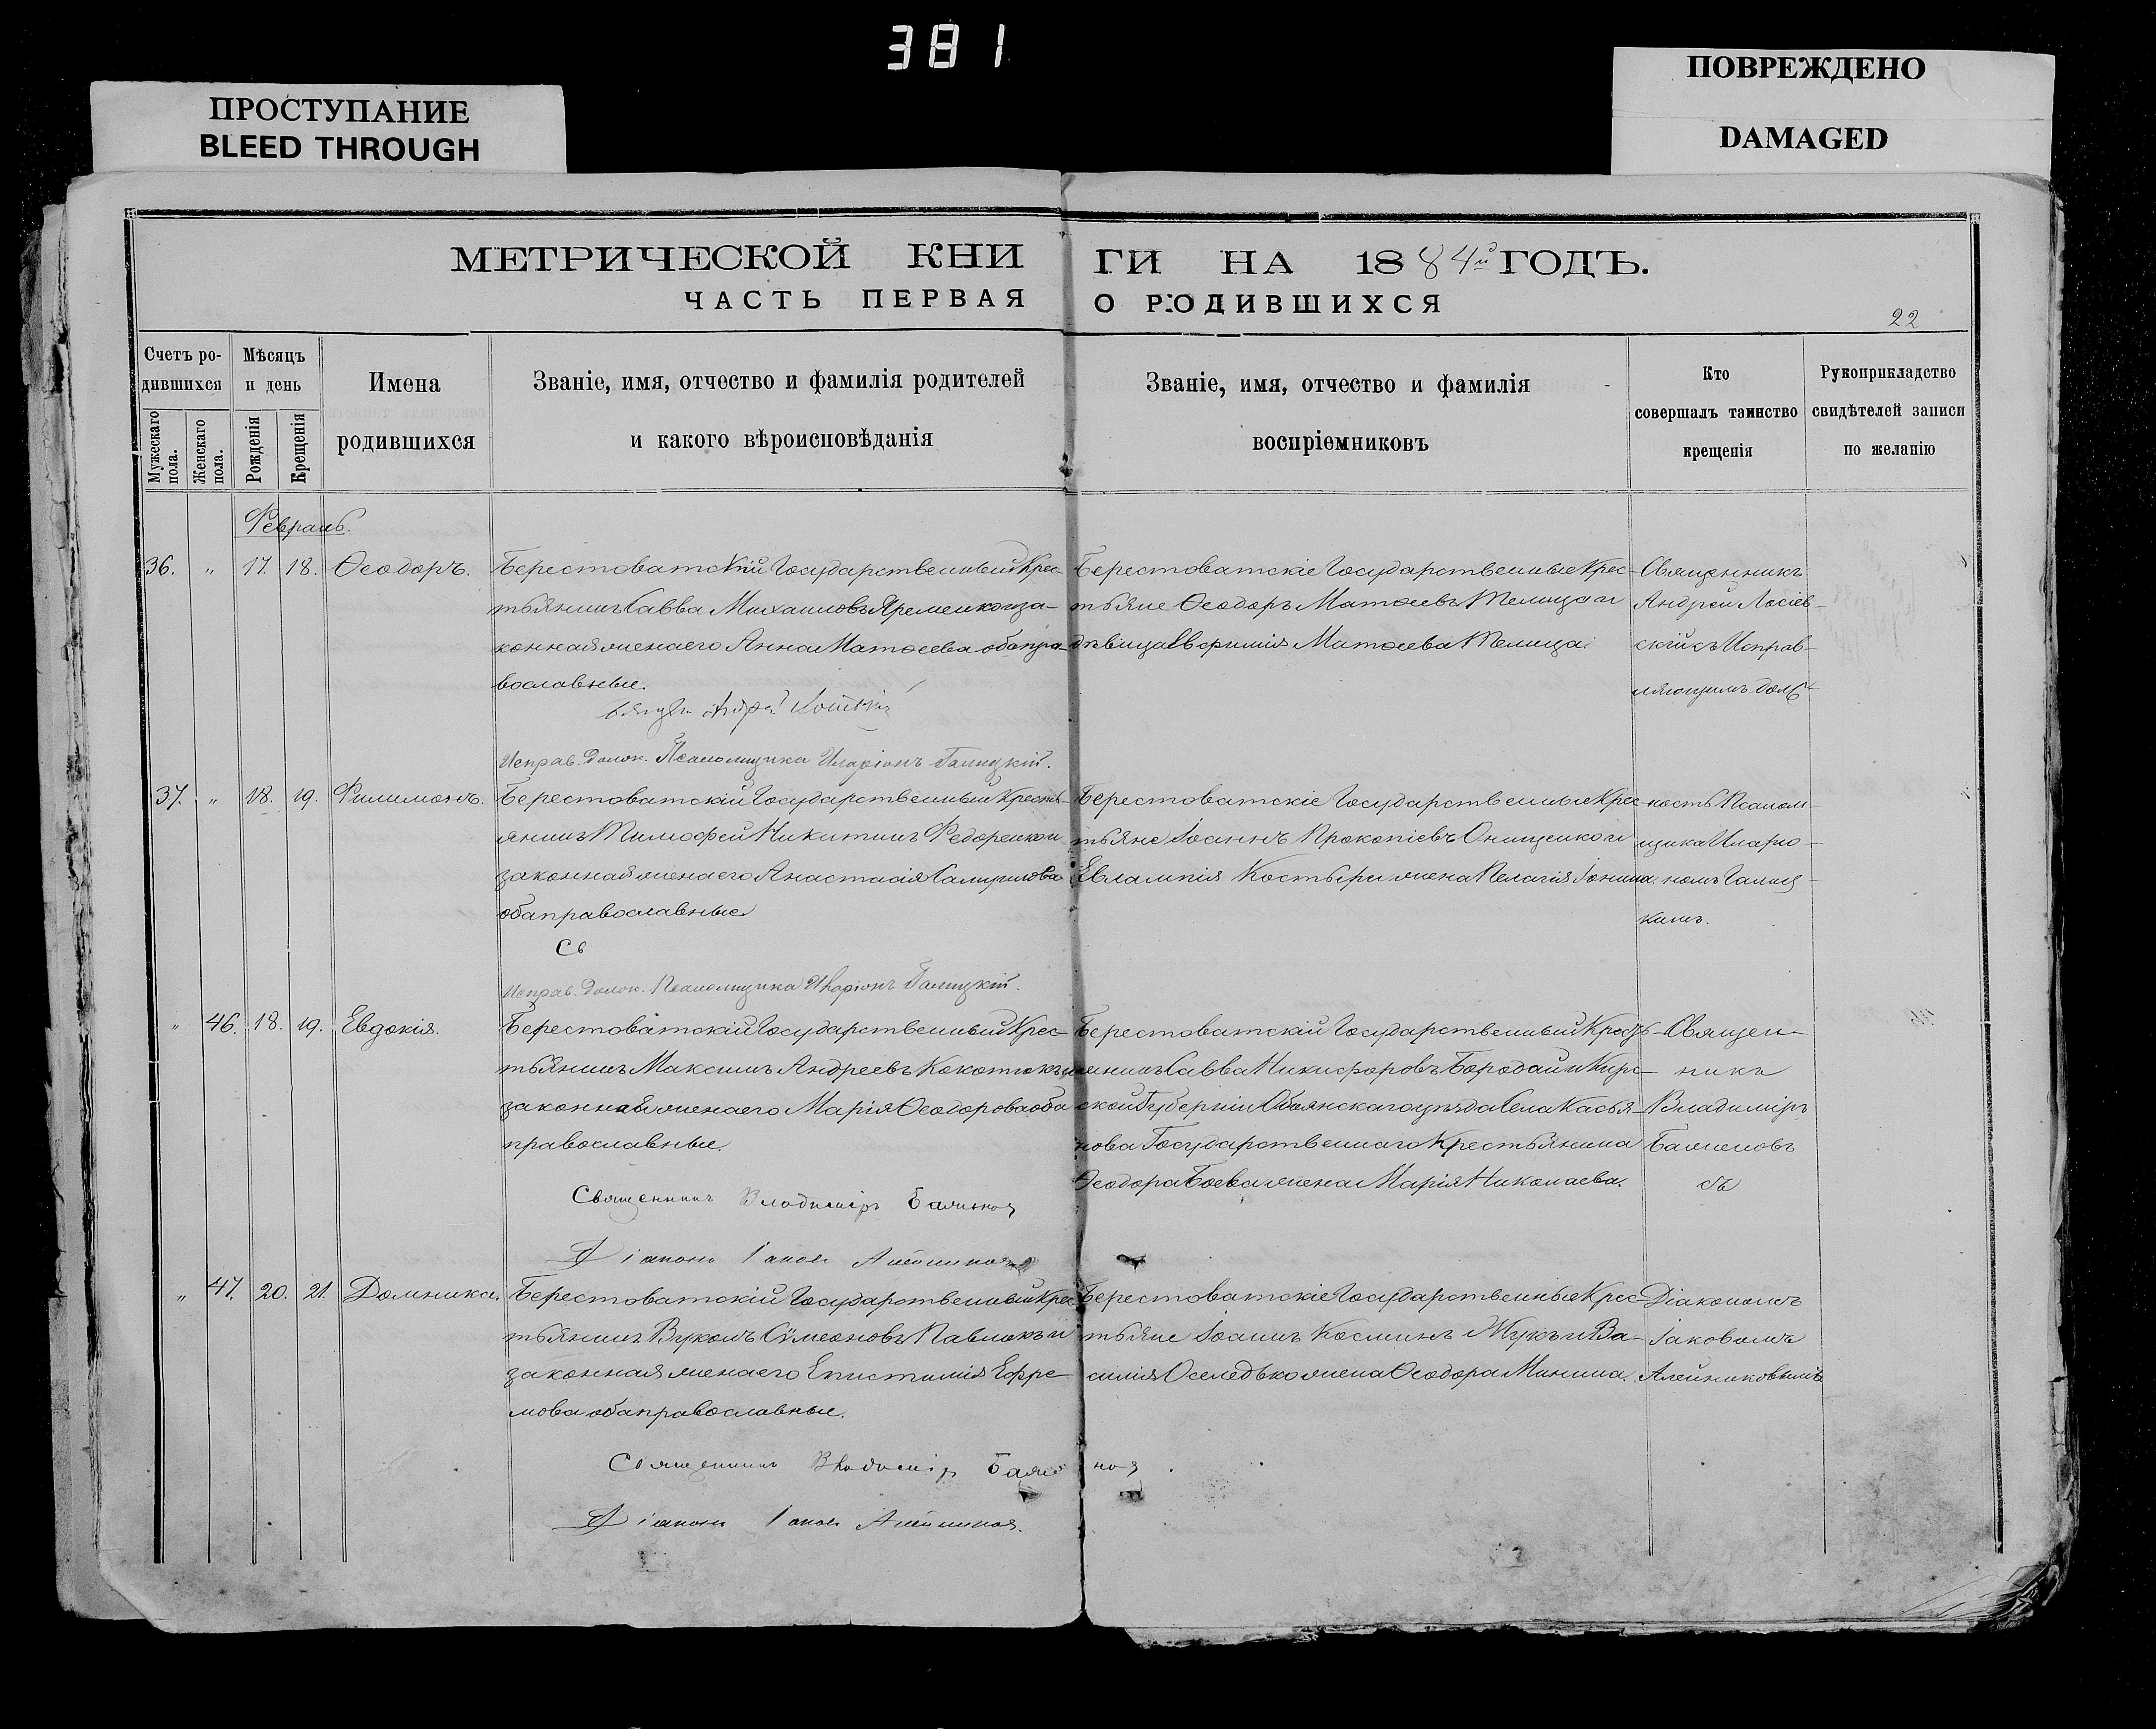 381
ПРОСТУПАНИЕ
BLEED THROUGH
ПОВРЕЖДЕНО
DAMAGED
МЕТРИЧЕСКОЙ КНИ
ЧАСТЬ ПЕРВАЯ
ГИ НА 1884й ГОДЪ.
О РОДИВШИХСЯ
22
Счетъ ро-
дившихся
Мужескаго пола.
Женскаго пола.
Мѣсяцъ
и день
Рожденія
Крещенія
Имена
родившихся
Званіе, имя, отчество и фамилія родителей
и какого вѣроисповѣданія
Званіе, имя, отчество и фамилія
воспріемниковъ
Кто
совершалъ таинство
крещенія
Рукоприкладство
свидѣтелей записи
по желанію
Февраль.
36. " 17. 18. Ѳеодоръ.
Берестоватскій Государственный Крес-
тьянинъ Савва Михаиловъ Яременко и за-
конная жена его Анна Матѳеева оба пра-
вославные.
Исправ. долж. Псаломщика Иларіонъ Галицкій.
Берестоватскіе Государственные Крес-
тьяне Ѳеодоръ Матѳеевъ Телица и
дѣвица Евфимія Матѳеева Телица.
Священникъ
Андрей Лосіев-
скій съ Исправ-
ляющимъ долж-
37. " 18. 19. Филимонъ.
Берестоватскій Государственный Кресть-
янинъ Тимофей Никитинъ Федоренко и
законная жена его Анастасія
оба православные.
Св
Исправ. долж. Псаломщика Иларіонъ Галицкій.
Берестоватскіе Государственные Крес-
тьяне Іоаннъ Прокопіевъ Онищенко и
Евлампія Костыри жена Пелагія Іонина.
ность Псалом-
щика Иларіо-
номъ Галиц-
кимъ.
" 46. 18. 19. Евдокія.
Берестоватскій Государственный Крес-
тьянинъ Максимъ Андреевъ Кокотюкъ и
законная жена его Марія Ѳеодорова оба
православные.
Священникъ Владиміръ Баженов
Діаконъ Іаковъ Алейников
Берестоватскій Государственный Кресть-
янинъ Савва Никифоровъ Бородай и Кур-
ской Губерніи Обоянскаго уѣзда Села Касья-
нова Государственнаго Крестьянина
Ѳеодора Боева жена Марія Николаева.
Священ-
никъ
Владиміръ
Баженовъ
съ
" 47. 20. 21. Домника.
Берестоватскій Государственный Крес-
тьянинъ Вуколъ Сѵмеоновъ Павлюкъ и
законная жена его Епистимія Ефре-
мова оба православные.
Священникъ Владиміръ Баженов
Діаконъ Іаковъ Алейников.
Берестоватскіе Государственные Крес-
тьяне Іоаннъ Косминъ Жукъ и Ва-
силія Оселедько жена Ѳеодора Минина.
Діакономъ
Іаковомъ
Алейниковымъ